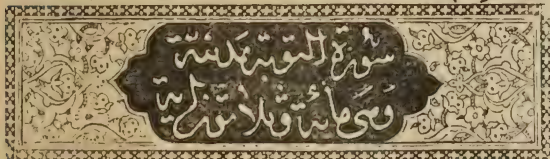 سورة التوبة مدنية
وهي مائة وثلاثون اية